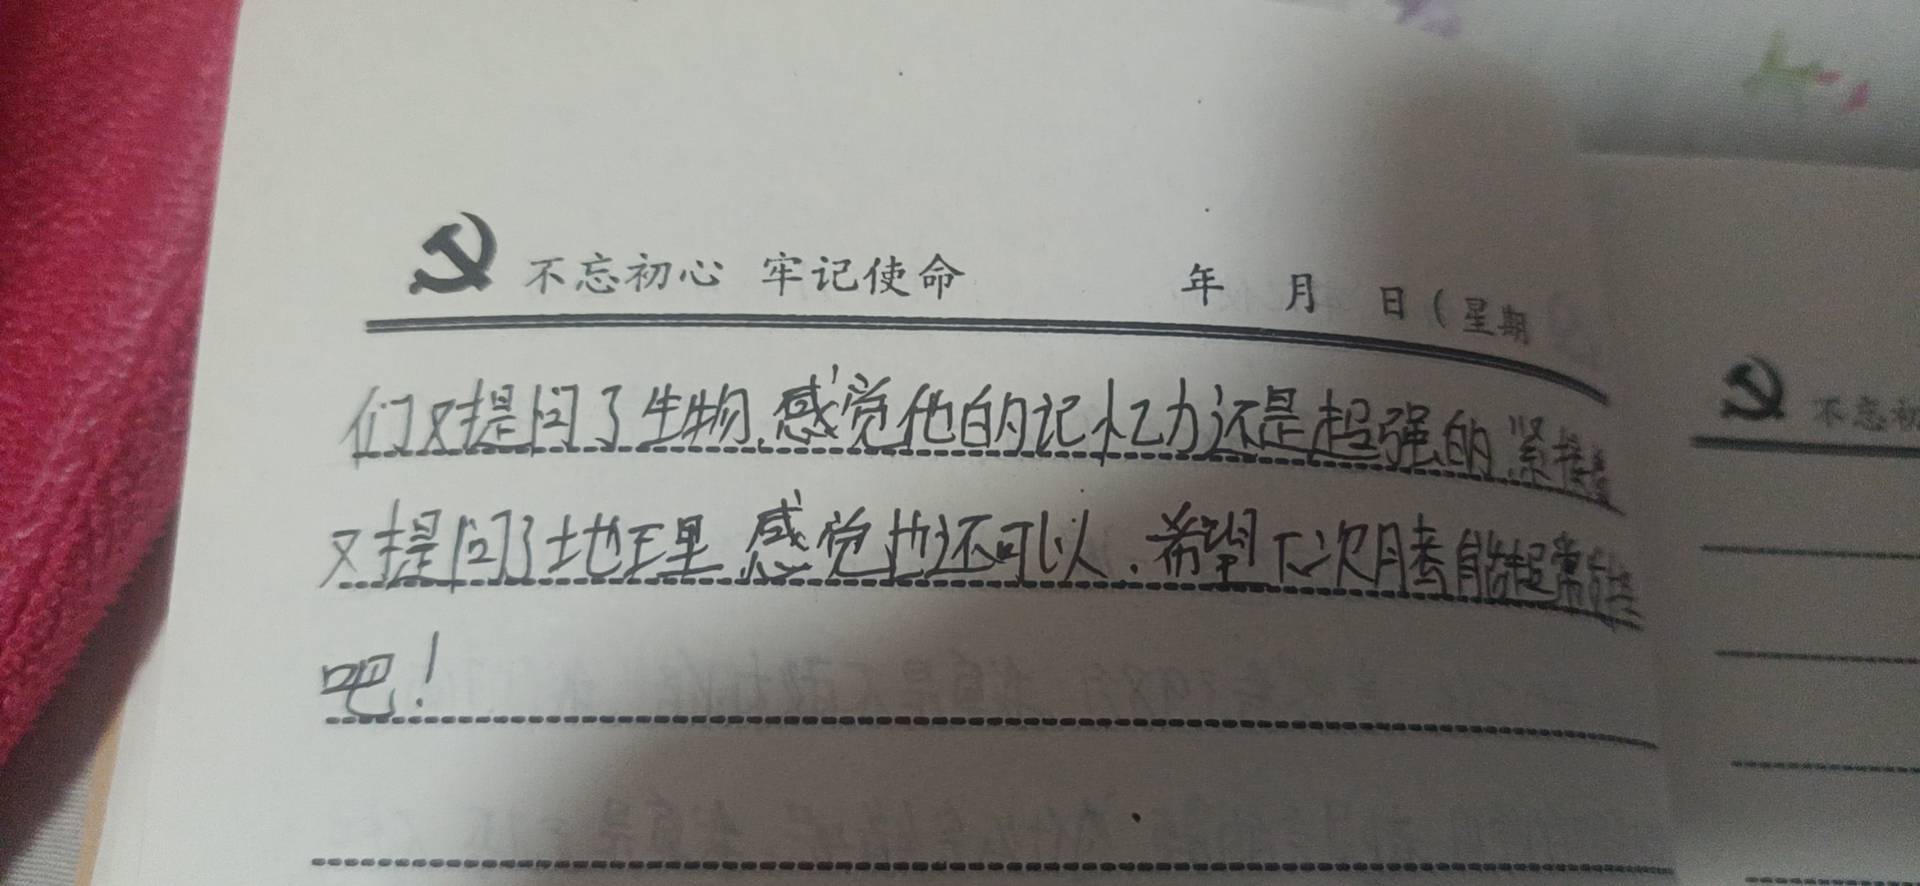 不忘初心 牢记使命 年 月 日（星期
们又提问了生物,感觉他的记忆力还是超强的,紧接着
又提问了地理,感觉也还可以.希望下次月考能超常发挥
吧！
不忘初